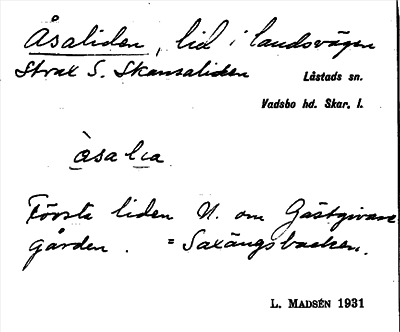 Åsaliden, lid i landsvägen
Strax S. Skansaliden
Låstads sn.
Vadsbo hd. Skar. l.
åsalia
Första liden N. om Gästgivare
gården. = Saxängsbacken.
L. MADSÉN 1931